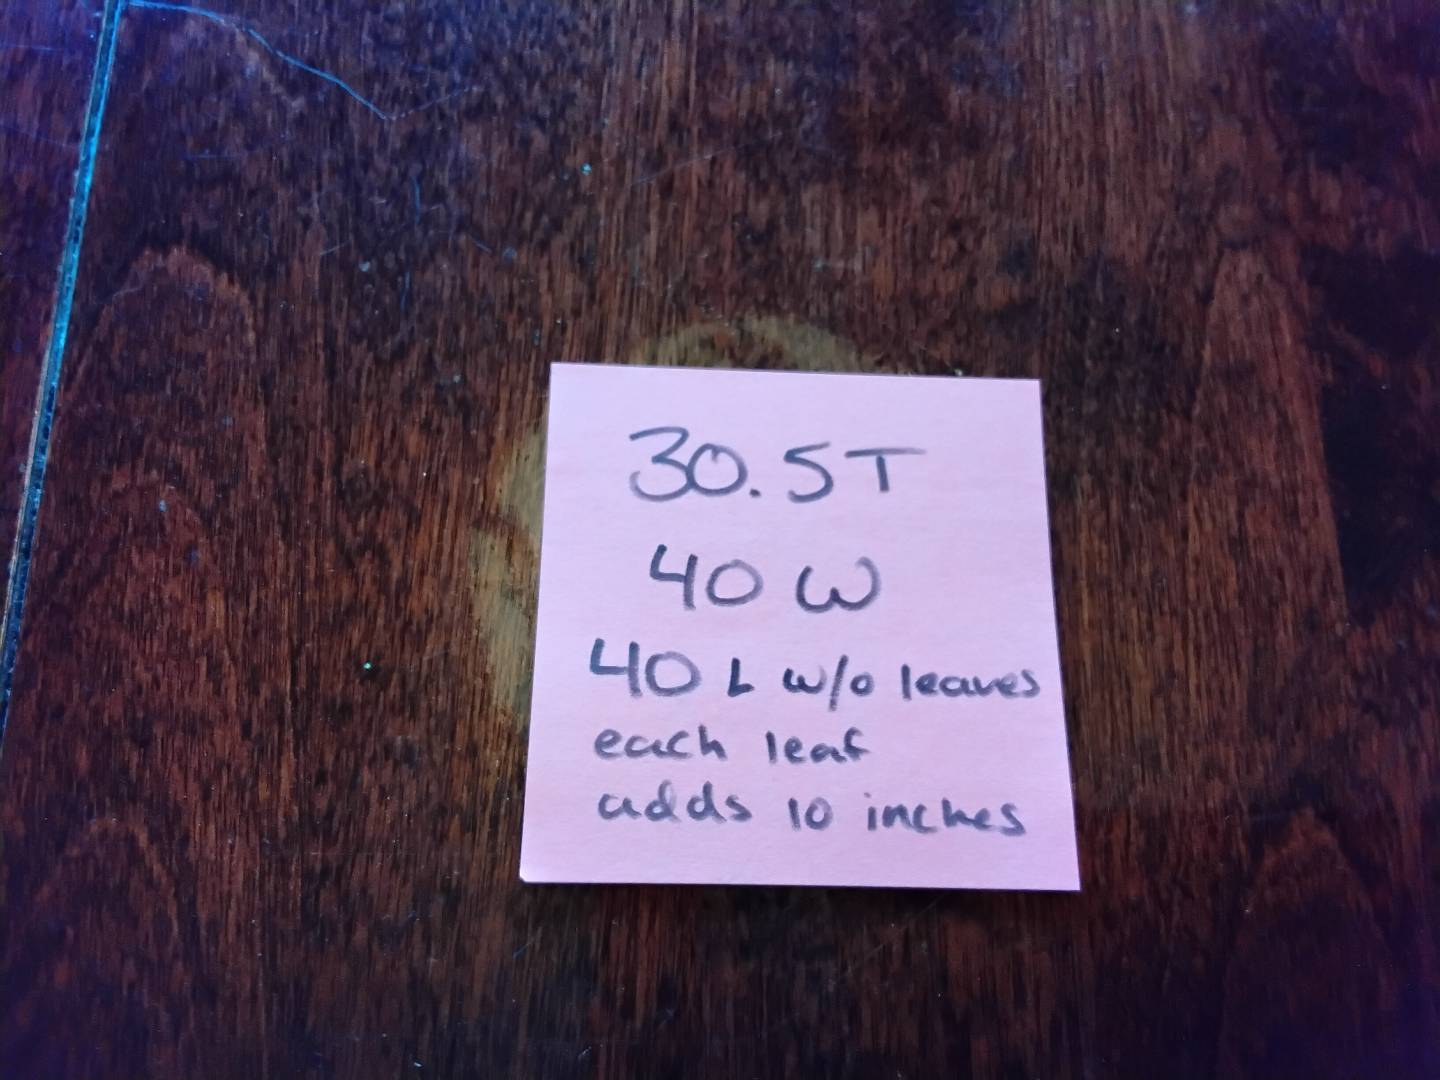 30.5 T
40 W
40 L w/o leaves
each leaf
adds 10 inches